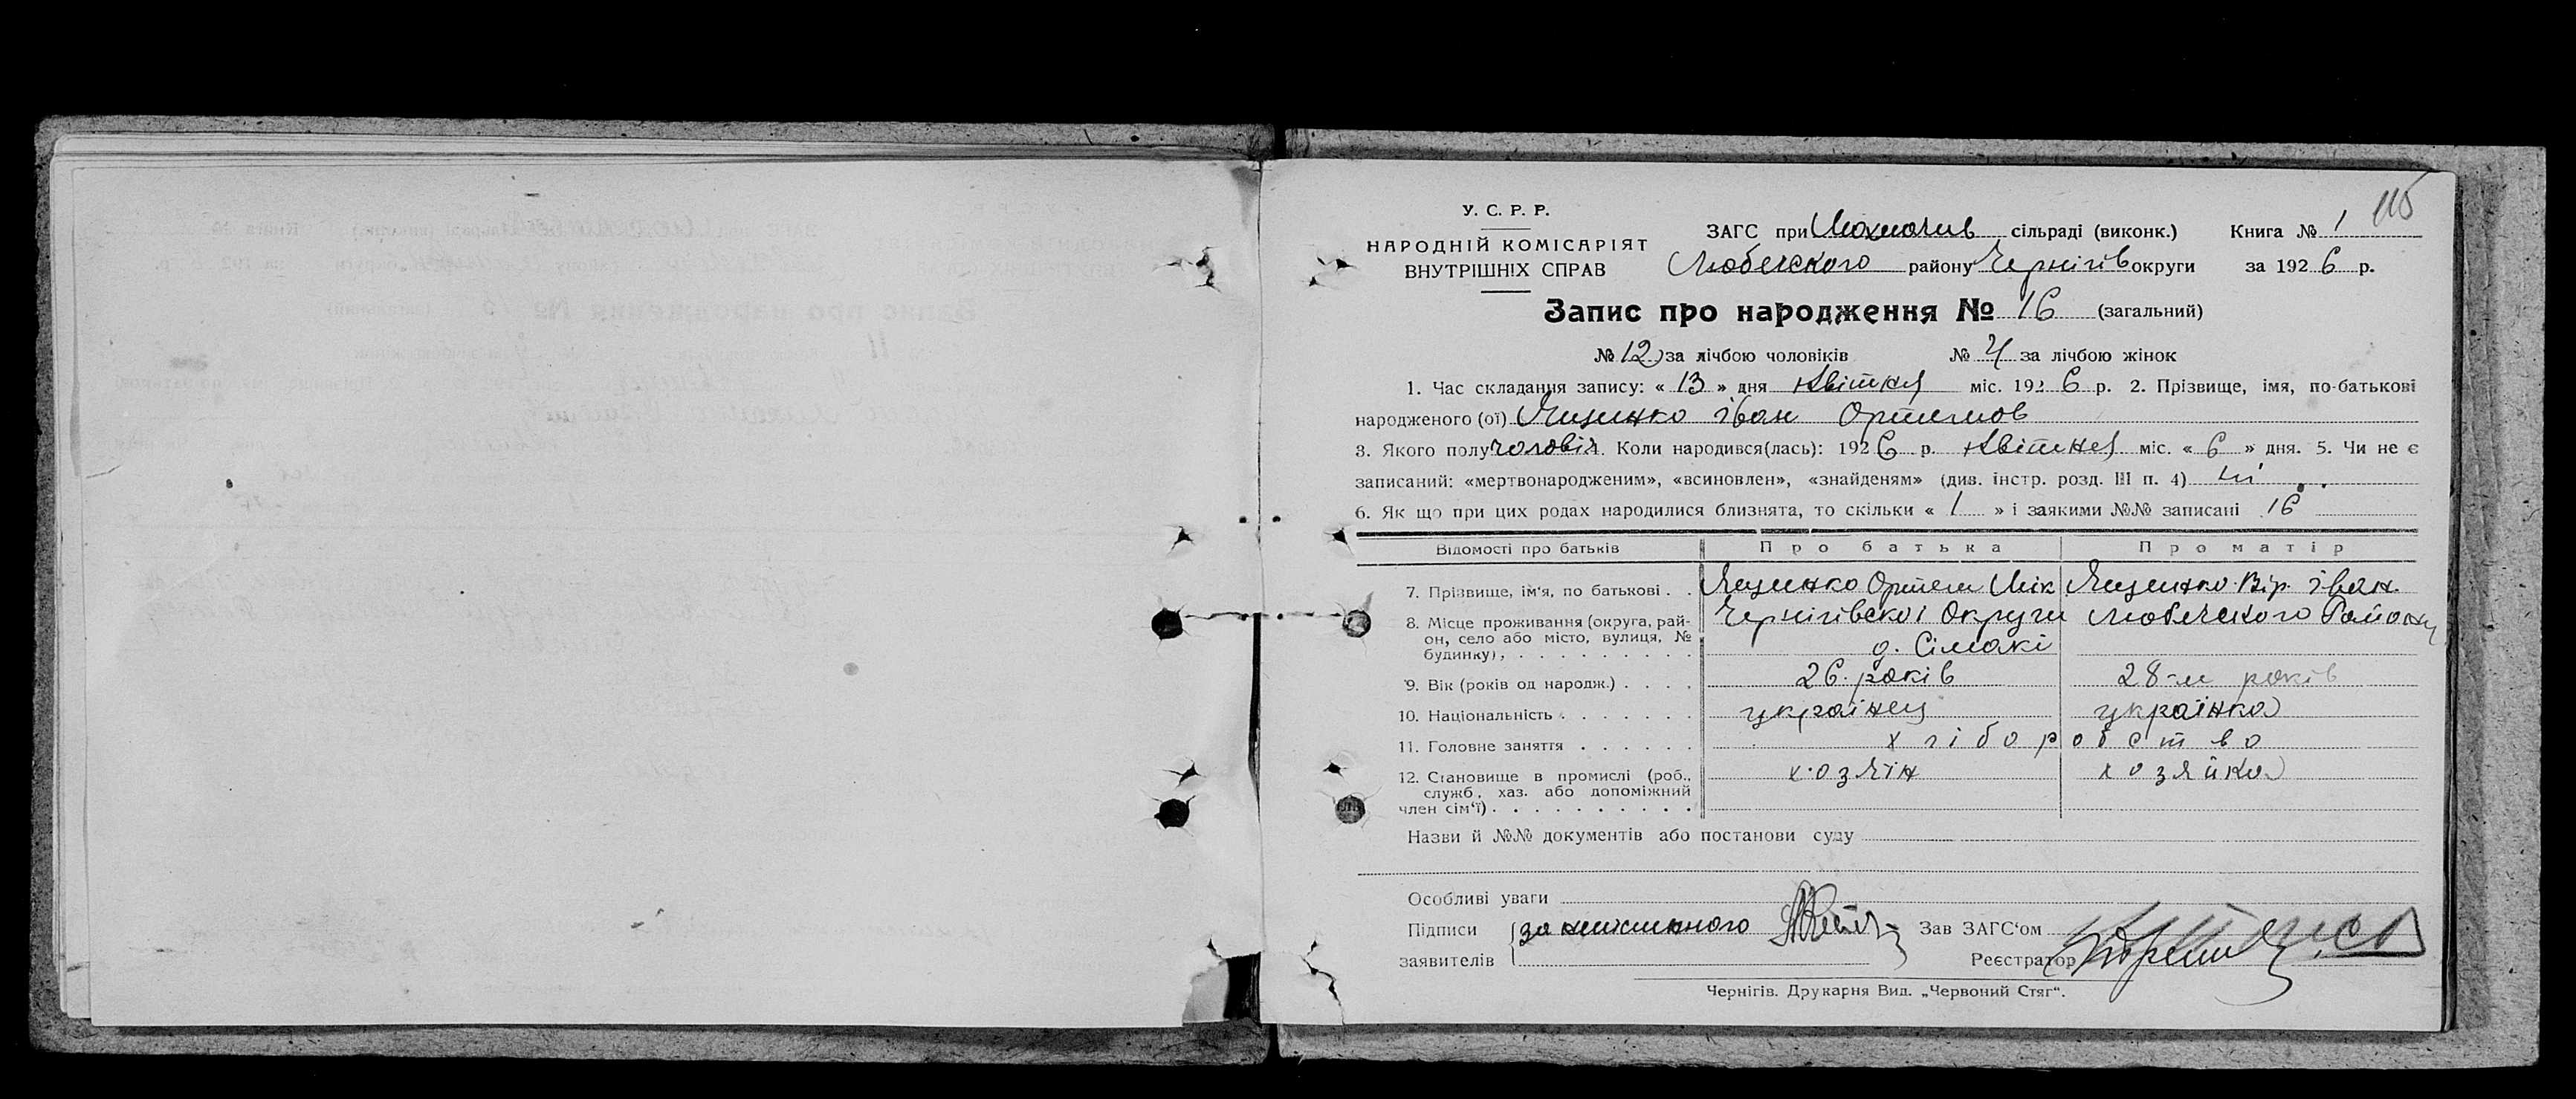 115
У. С. Р. Р.
НАРОДНІЙ КОМІСАРІЯТ
ВНУТРІШНІХ СПРАВ
ЗАГС при Мохначив сільраді (виконк.) Книга № 1
Любеского району Чернігів округи за 1926 р.
Запис про народження № 16 (загальний)
№ 12 за лічбою чоловіків № 4 за лічбою жінок
1. Час складання запису: « 13 » дня квітня міс. 1926 р. 2. Прізвище, імя, по-батькові
народженого (ої) Ящинко іван Ортемов
3. Якого полу чоловіч. Коли народився(лась): 1926 р. квітня міс. « 6 » дня. 5. Чи не є
записаний: «мертвонародженим», «всиновлен», «знайденям» (див. інстр. розд. III п. 4) ні
6. Як що при цих родах народилися близнята, то скільки « 1 » і заякими №№ записані 16
Відомості про батьків Про батька Про матір
7. Прізвище, ім'я, по батькові . . Ящинко Ортем Мик Ящинко Вір іван.
8. Місце проживання (округа, рай- Чернігівскоі Округи Любеского Району
он, село або місто, вулиця, № д. Сімакі
будинку),
9. Вік (років од народж.) . . . . 26. років 28-м років
10. Національність . . . . . . . українец українка
11. Головне заняття . . . . . . хліборобство
12. Становище в промислі (роб., хозяін хозяйка
служб., хаз. або допоміжний
член сім'ї) . . . . . . . . . .
Назви й №№ документів або постанови суду
Особливі уваги
Підписи за
заявителів
Зав ЗАГС'ом
Реєстратор
Чернігів. Друкарня Вид. „Червоний Стяг".